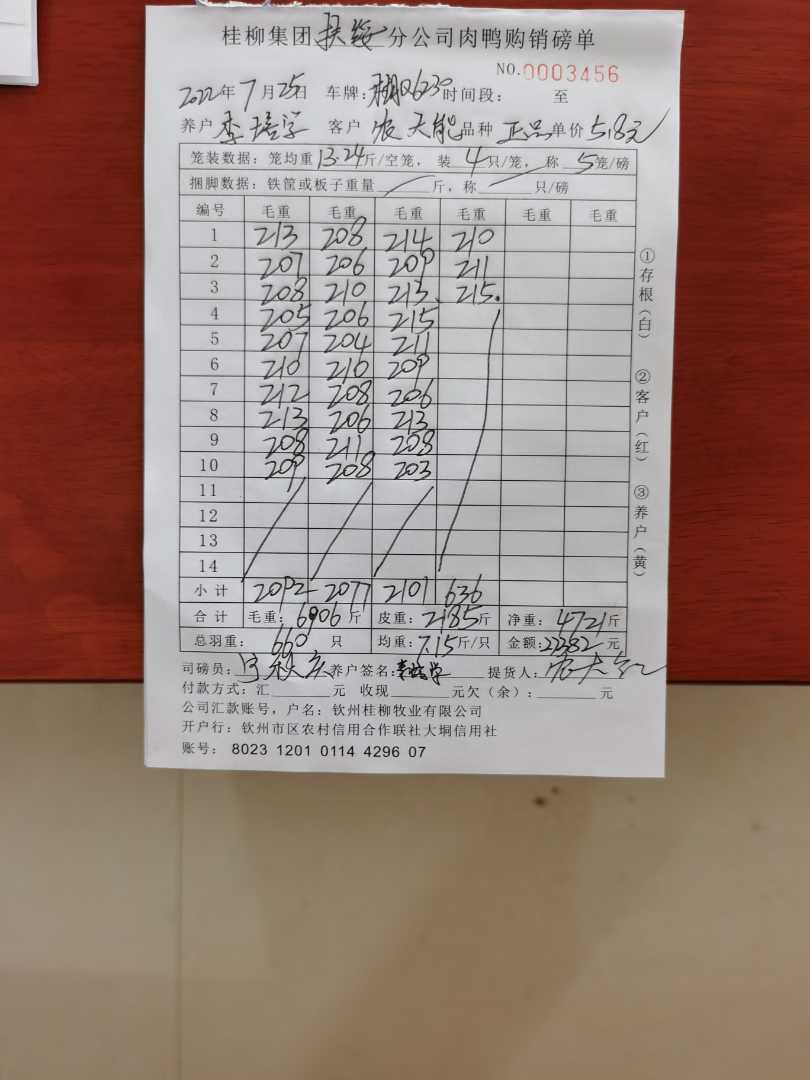 桂柳集团扶绥分公司肉鸭购销磅单
NO.0003456
2022年7月25日 车牌: Q6230 时间段: 至
养户 李培学 客户 农天能 品种 正品 单价 5.8元
笼装数据: 笼均重 13.24 斤/空笼, 装 4 只/笼, 称 5 笼/磅
捆脚数据: 铁筐或板子重量 斤, 称 只/磅
编号 毛重 毛重 毛重 毛重 毛重 毛重
1 213 208 214 210
2 207 206 209 211
3 208 210 213 215
4 205 206 215
5 207 204 211
6 210 210 209
7 212 208 206
8 213 206 213
9 208 211 208
10 209 208 203
11
12
13
14
小计 2092 2077 2101 636
合计 毛重: 6906 斤 皮重: 2185 斤 净重: 4721 斤
总羽重: 660 只 均重: 7.15 斤/只 金额: 27382 元
司磅员: 养户签名: 李培学 提货人:
付款方式: 汇 元 收现 元欠(余): 元
公司汇款账号, 户名: 钦州桂柳牧业有限公司
开户行: 钦州市区农村信用合作联社大垌信用社
账号: 8023 1201 0114 4296 07
①存根(白)
②客户(红)
③养户(黄)